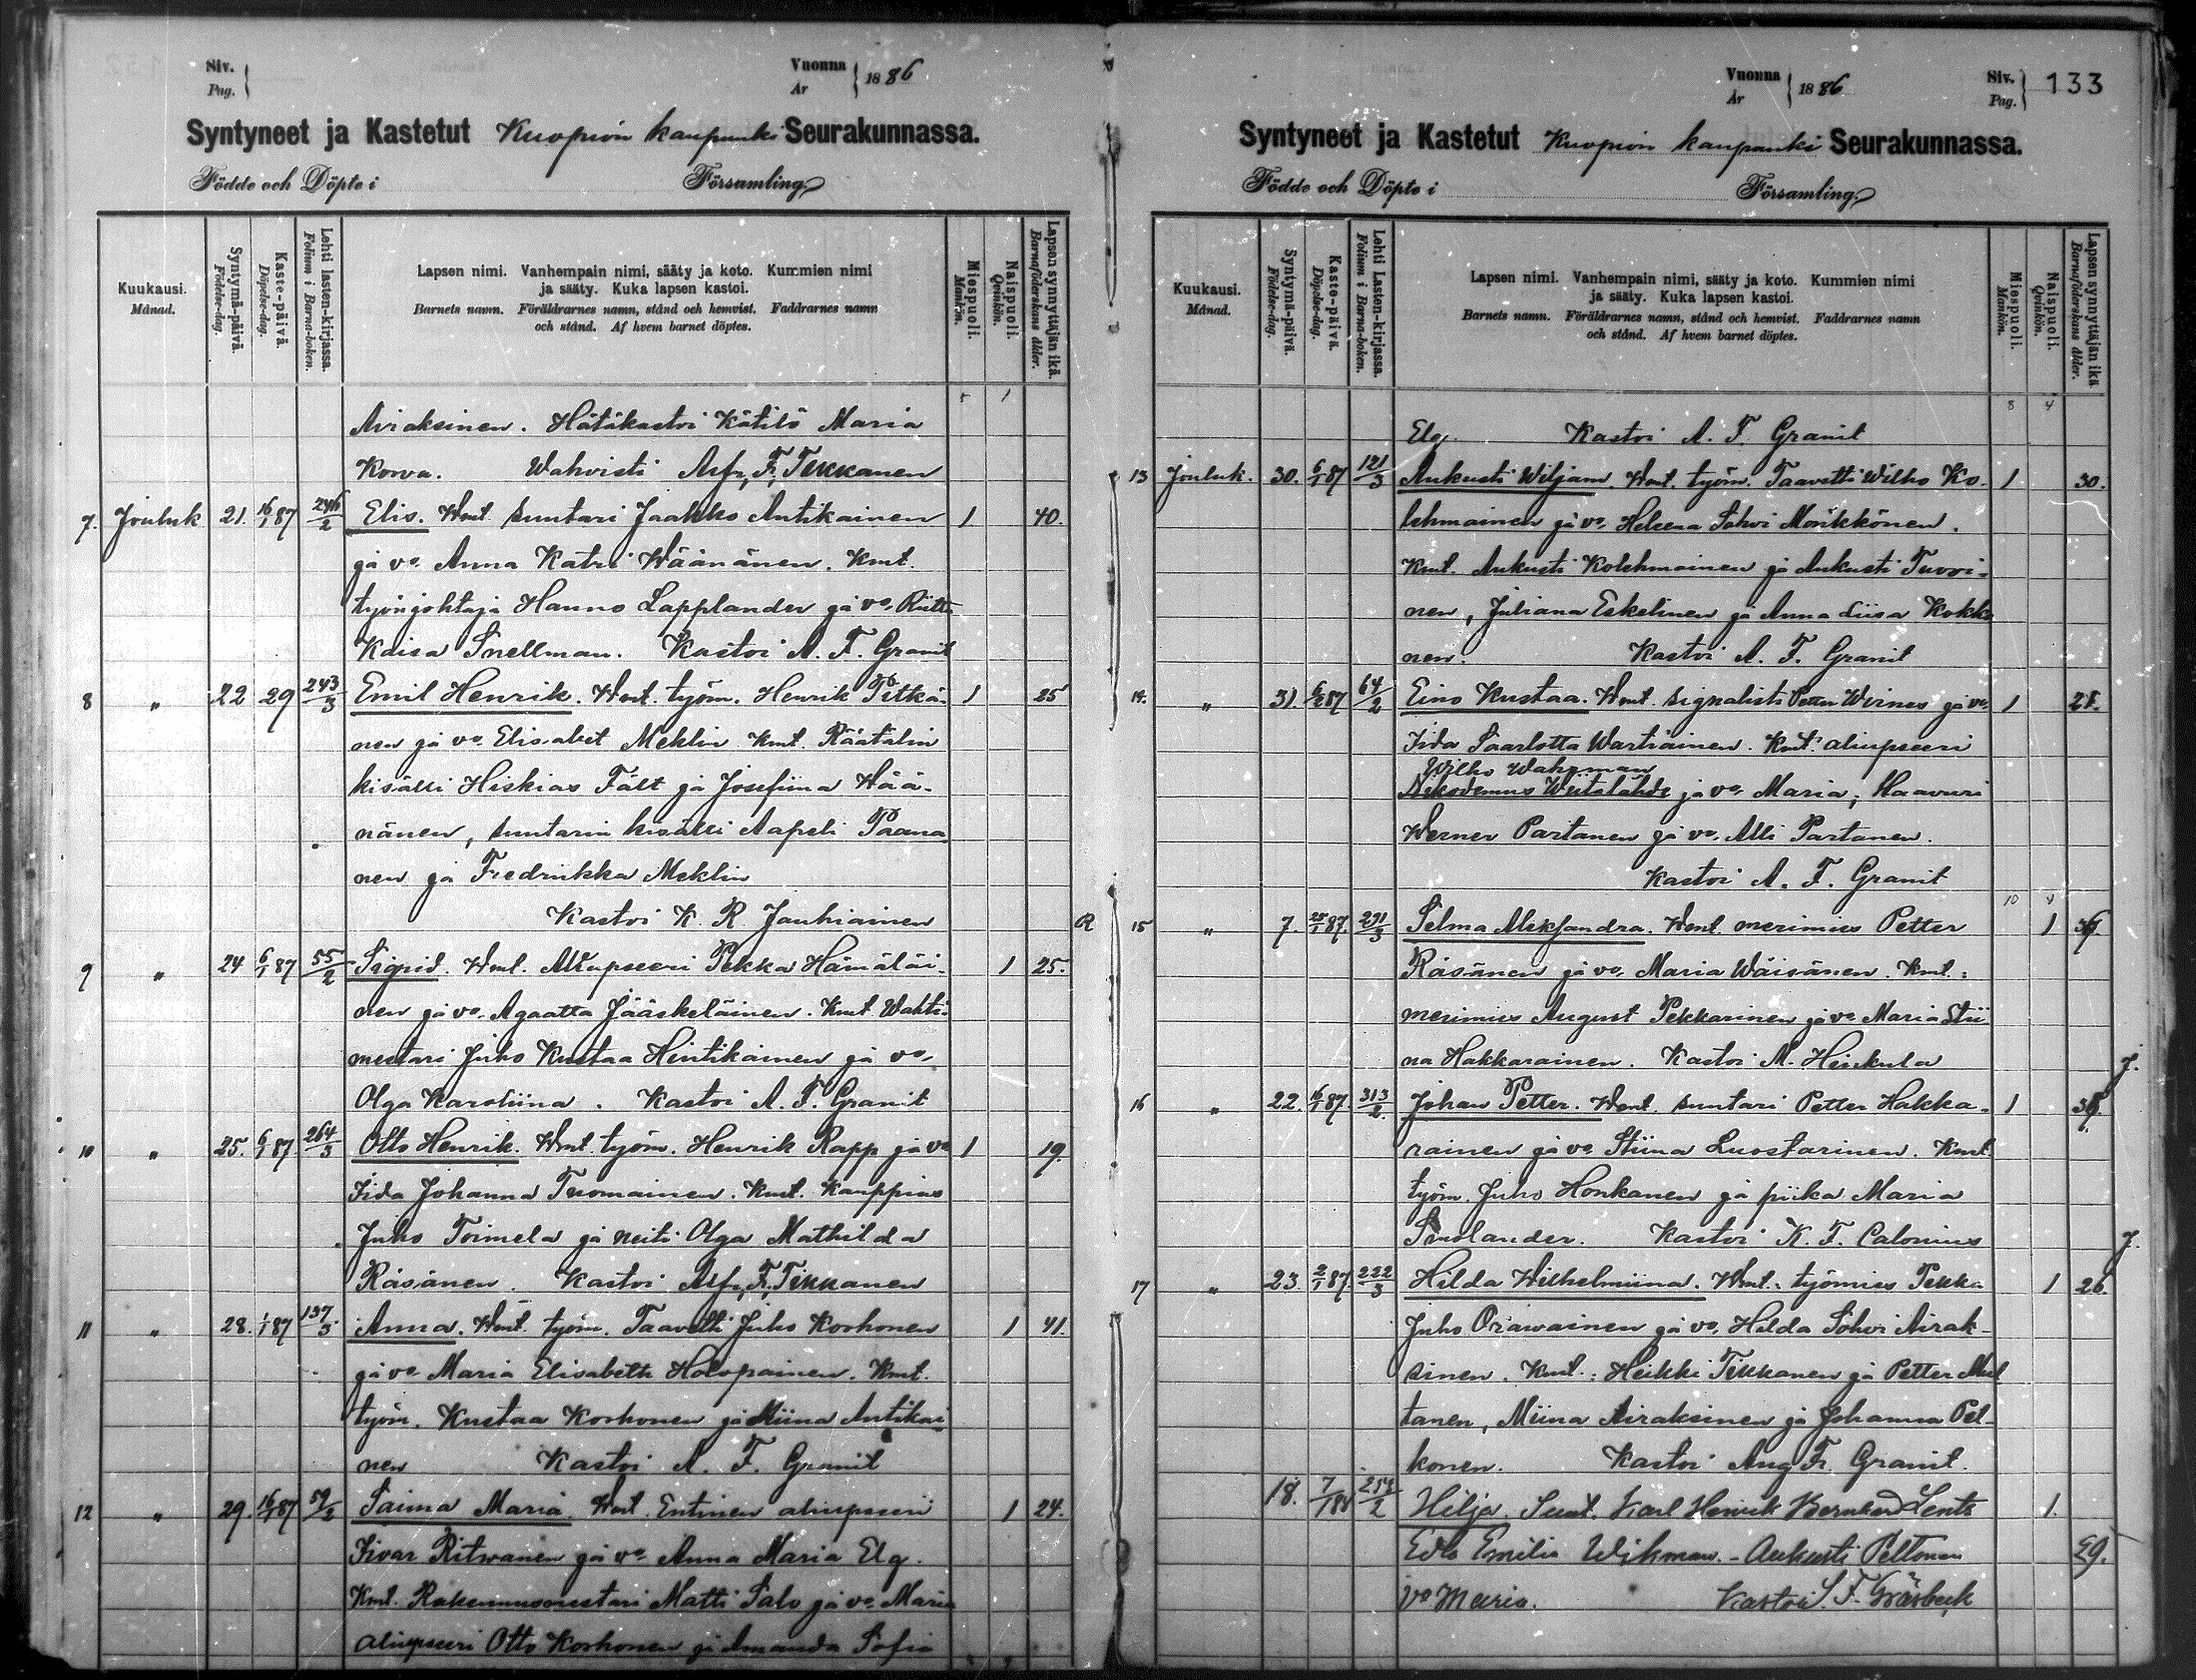 Siv.
Pag.
Vuonna
År
1886
Syntyneet ja Kastetut Kuopion kaupunki Seurakunnassa.
Födde och Döpte i Församling.
Kuukausi.
Månad.
Syntymä-päivä.
Födelse-dag.
Kaste-päivä.
Döpelse-dag.
Lehti lasten-kirjassa.
Folium i Barna-boken.
Lapsen nimi. Vanhempain nimi, sääty ja koto. Kummien nimi
ja sääty. Kuka lapsen kastoi.
Barnets namn. Föräldrarnes namn, stånd och hemvist. Faddrarnes namn
och stånd. Af hvem barnet döptes.
Miespuoli.
Mankön.
Naispuoli.
Qvinkön.
Lapsen synnyttäjän ikä.
Barnaföderskans ålder.
Airaksinen. Hätäkastoi Kätilö Maria
Korva. Wahvisti Alfr. F. Tikkanen
7. Jouluk 21. 16/1 87 246/2 Elis. Wmt. suntari Jaakko Antikainen 1 40.
ja vo. Anna Katri Wäänänen. Kmt.
työnjohtaja Hanno Lapplander ja vo. Riitta
Kaisa Snellman. Kastoi A. F. Granit
8 " 22 29 243/3 Emil Henrik. Wmt. työm. Henrik Pitkä- 1 25
nen ja vo. Elisabet Meklin Kmt. Räätälin
kisälli Hiskias Fält ja Josefiina Wää-
nänen, suntarin kisälli Aapeli Paana
nen ja Fredrikka Meklin
Kastoi K. R. Jauhiainen
9 " 24 6/1 87 55/2 Sigrid. Wmt. Aliupseeri Pekka Hämäläi- 1 25.
nen ja vo. Agaatta Jääskeläinen. Kmt Wahti-
mestari Juho Kustaa Hintikainen ja vo.
Olga Karoliina. Kastoi A. F. Granit
10 " 25. 6/1 87. 264/3 Otto Henrik. Wmt. työm. Henrik Rapp ja vo 1 19.
Iida Johanna Tuomainen. Kmt. Kauppias
Juho Toimela ja neiti Olga Mathilda
Räsänen. Kastoi Alfr. F. Tikkanen
11 " 28. 1/1 87 137/3 Anna. Wmt. työm. Taavetti Juho Korhonen 1 41.
ja vo. Maria Elisabeth Holopainen. Kmt.
työm. Kustaa Korhonen ja Miina Antikai
nen Kastoi A. F. Granit
12 " 29. 16/1 87 59/2 Saima Maria. Wmt. Entinen aliupseeri 1 24.
Iivar Ritwanen ja vo. Anna Maria Elg.
Kmt. Rakennusmestari Matti Salo ja vo. Maria
aliupseeri Otto Korhonen ja Amanda Sofia
Vuonna
År
1886
Siv.
Pag.
133
Syntyneet ja Kastetut Kuopion kaupunki Seurakunnassa.
Födde och Döpte i Församling.
Kuukausi.
Månad.
Syntymä-päivä.
Födelse-dag.
Kaste-päivä.
Döpelse-dag.
Lehti Lasten-kirjassa.
Folium i Barna-boken.
Lapsen nimi. Vanhempain nimi, sääty ja koto. Kummien nimi
ja sääty. Kuka lapsen kastoi.
Barnets namn. Föräldrarnes namn, stånd och hemvist. Faddrarnes namn
och stånd. Af hvem barnet döptes.
Miespuoli.
Mankön.
Naispuoli.
Qvinkön.
Lapsen synnyttäjän ikä
Barnaföderskans ålder.
8 4
Elg. Kastoi A. F. Granit
13 Jouluk. 30. 6/1 87 121/3 Aukusti Wiljam. Wmt. työm. Taavetti Wilho Ko- 1 30.
lehmainen ja vo. Helena Sohvi Mönkkönen.
Kmt. Aukusti Kolehmainen ja Aukusti Tuovi-
nen, Juliana Eskelinen ja Anna Liisa Kokko
nen. Kastoi A. F. Granit
14. " 31. 87 64/2 Eino Kustaa. Wmt. signalisti Petter Wirnes ja vo. 1
Iida Saarlotta Wartiainen. Kmt. aliupseeri
Wilho Wahrman
Nikodemus ja vo. Maria, Haavuri
Werner Partanen ja vo. Alli Partanen.
Kastoi A. F. Granit
10 4
R 15 " 7. 25/1 87. 291/3 Selma Aleksandra. Wmt. merimies Petter 1
Räsänen ja vo. Maria Wäisänen. Kmt.:
merimies August Pekkarinen ja vo. Maria Stii
na Hakkarainen. Kastoi M. Heikula
J.
16 " 22. 16/1 87. 313/2. Johan Petter. Wmt. suntari Petter Hakka- 1
rainen ja vo. Stiina Luostarinen. Kmt
työm. Juho Honkanen ja piika Maria
Smolander. Kastoi K. F. Calonius
J.
17 " 23. 2/1 87. 222/3 Hilda Wilhelmiina. Wmt.: työmies Pekka 1 26.
Juho Oiawainen ja vo. Hilda Sohvi Airak-
sinen. Kmt.: Heikki Tikkanen ja Petter Mul
tanen, Miina Airaksinen ja Johanna Pel-
konen. Kastoi Aug. Fr. Granit.
18. 254/2 Hilja. Karl Henrik Bernhard Lents 1.
Edla Emilia Wikman. - Aukusti Peltonen 29.
vo Maria. Kastoi S. F. Gräsbeck